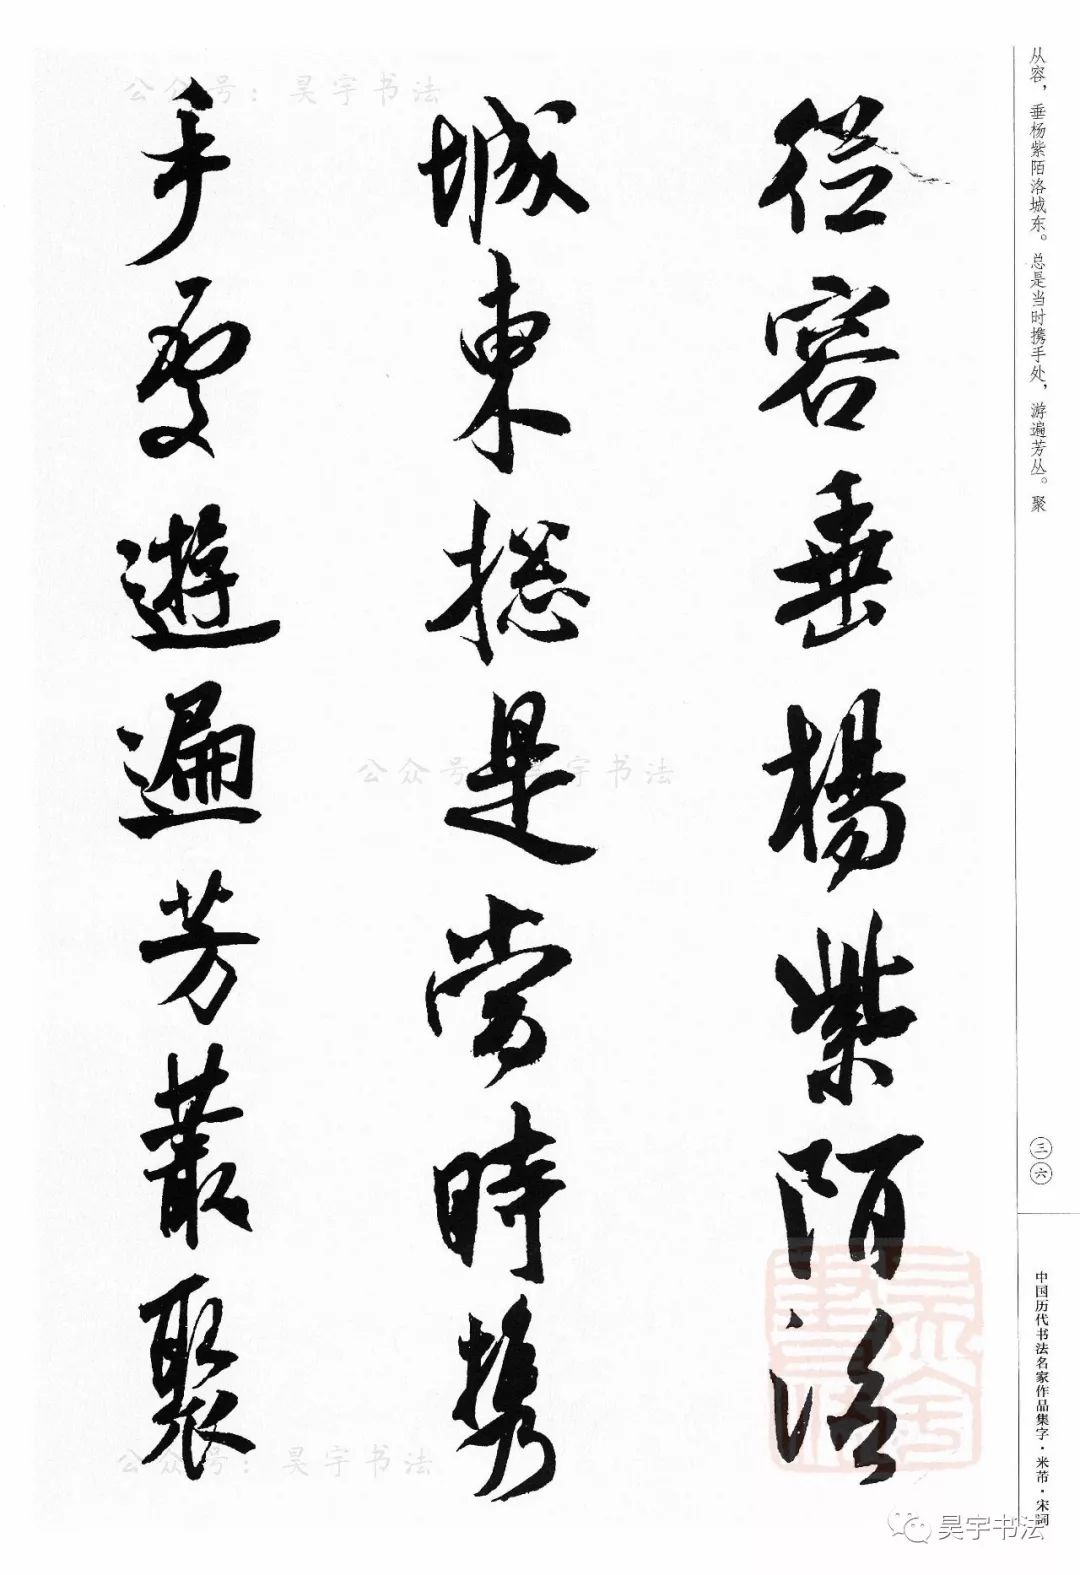 从容，垂杨紫陌洛城东。总是当时携手处，游遍芳丛。聚
從容垂楊紫陌洛
城東捴是當時携
手處遊遍芳叢聚
三六
中国历代书法名家作品集字·米芾·宋詞
公众号：昊宇书法
公众号：昊宇书法
公众号：昊宇书法
昊宇书法